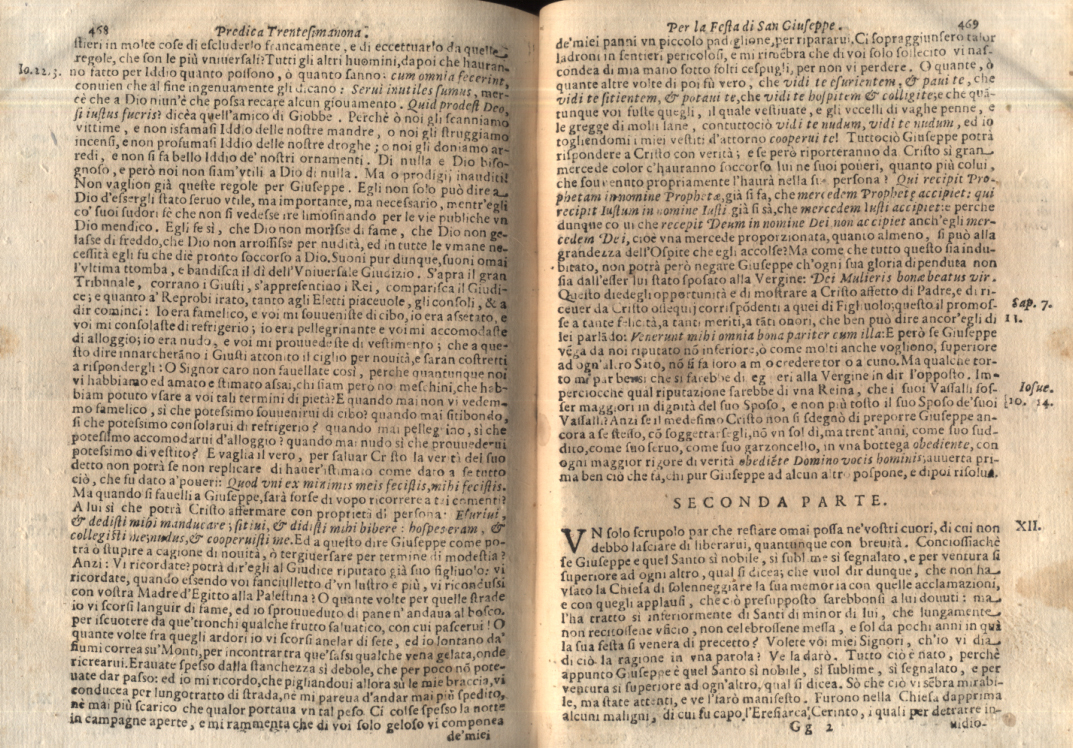 468 Predica Trentesimanona.
stieri in molte cose di escluderlo francamente, e di eccettuarlo da quelle
regole, che son le più vniuersali? Tutti gli altri huomini, dapoi che hauran
Io.22.3. no fatto per Iddio quanto possono, ò quanto sanno: cum omnia fecerint,
conuien che al fine ingenuamente gli dicano: Serui inutiles sumus, mer-
cè che a Dio niun'è che possa recare alcun giouamento. Quid prodest Deo,
si iustus fueris? dicèa quell'amico di Giobbe. Perchè ò noi gli scanniamo
vittime, e non isfamasi Iddio delle nostre mandre, o noi gli struggiamo
incensi, e non profumasi Iddio delle nostre droghe; o noi gli doniamo ar-
redi, e non si fa bello Iddio de' nostri ornamenti. Di nulla e Dio biso-
gnoso, e però noi non siam'vtili a Dio di nulla. Ma o prodigi; inauditi!
Non vaglion già queste regole per Giuseppe. Egli non solo può dire a
Dio d'essergli stato seruo vtile, ma importante, ma necessario, mentr'egli
co' suoi sudori fè che non si vedesse ire limosinando per le vie publiche vn
Dio mendico. Egli fe sì, che Dio non morisse di fame, che Dio non ge-
lasse di freddo, che Dio non arrossisse per nudità, ed in tutte le vmane ne-
cessità egli fu che diè pronto soccorso a Dio. Suoni pur dunque, suoni omai
l'vltima tromba, e bandisca il dì dell'Vniuersale Giudizio. S'apra il gran
Tribunale, corrano i Giusti, s'appresentino i Rei, comparisca il Giudi-
ce; e quanto a' Reprobi irato, tanto agli Eletti piaceuole, gli consoli, & a
dir cominci: Io era famelico, e voi mi souueniste di cibo, io era assetato, e
voi mi consolaste di refrigerio; io era pellegrinante e voi mi accomodaste
di alloggio; io era nudo, e voi mi prouuedeste di vestimento; che a que-
sto dire innarcheràno i Giusti attonito il ciglio per nouità, e saran costretti
a rispondergli: O Signor caro non fauellate così, perche quantunque noi
vi habbiamo ed amato e stimato assai, chi siam però noi meschini, che hab-
biam potuto vsare a voi tali termini di pietà? E quando mai non vi vedem-
mo famelico, sì che potessimo souuenirui di cibo? quando mai sitibondo,
sì che potessimo consolarui di refrigerio? quando mai pellegrino, sì che
potessimo accomodarui d'alloggio? quando mai nudo sì che prouuederui
potessimo di vestito? E vaglia il vero, per saluar Cristo la verità del suo
detto non potrà se non replicare di hauer'istimato come dato a se tutto
ciò, che fu dato a' poueri: Quod vni ex minimis meis fecistis, mihi fecistis.
Ma quando si fauelli a Giuseppe, sarà forse di vopo ricorrere a tai comenti?
A lui sì che potrà Cristo affermare con proprietà di persona: Esuriui,
& dedisti mihi manducare; sitiui, & didisti mihi bibere: hospes eram, &
collegisti me; nudus, & cooperuisti me. Ed a questo dire Giuseppe come po-
trà ò stupire a cagione di nouità, ò tergiuersare per termine di modestia?
Anzi: Vi ricordate? potrà dir'egli al Giudice riputato già suo figliuolo: vi
ricordate, quando essendo voi fanciulletto d'vn lustro e più, vi ricondussi
con vostra Madre d'Egitto alla Palestina? O quante volte per quelle strade
io vi scorsi languir di fame, ed io sprouueduto di pane n'andaua al bosco,
per iscuotere da que' tronchi qualche frutto saluatico, con cui pascerui! O
quante volte fra quegli ardori io vi scorsi anelar di sete, ed io lontano da'
fiumi correa su' Monti, per incontrar tra que' sassi qualche vena gelata, onde
ricrearui. Erauate spesso dalla stanchezza sì debole, che per poco nō pote-
uate dar passo: ed io mi ricordo, che pigliandoui allora sù le mie braccia, vi
conducea per lungo tratto di strada, ne mi pareua d'andar mai più spedito,
nè mai più scarico che qualor portaua vn tal peso. Ci colse spesso la notte
in campagne aperte, e mi rammenta che di voi solo geloso vi componea
de' miei
Per la Festa di San Giuseppe. 469
de' miei panni vn piccolo padiglione, per ripararui. Ci sopraggiunsero talor
ladroni in sentieri pericolosi, e mi rimembra che di voi solo sollecito vi nas-
condea di mia mano sotto folti cespugli, per non vi perdere. O quante, ò
quante altre volte di poi fù vero, che vidi te esurientem, & paui te, che
vidi te sitientem, & potaui te, che vidi te hospitem & collegi te; e che quā-
tunque voi fuste quegli, il quale vestiuate, e gli vccelli di vaghe penne, e
le gregge di molli lane, contuttociò vidi te nudum, vidi te nudum, ed io
togliendomi i miei vestiti d'attorno cooperui te! Tuttociò Giuseppe potrà
rispondere a Cristo con verità; e se però riporteranno da Cristo sì gran
mercede color c'hauranno soccorso lui ne suoi poueri, quanto più colui,
che souuenuto propriamente l'haurà nella sua persona? Qui recipit Pro-
phetam in nomine Prophetæ, già si sa, che mercedem Prophetæ accipiet: qui
recipit Iustum in nomine Iusti già si sà, che mercedem Iusti accipiet: e perche
dunque colui che recepit Deum in nomine Dei, non accipiet anch'egli mer-
cedem Dei, cioè vna mercede proporzionata, quanto almeno, si può alla
grandezza dell'Ospite che egli accolse? Ma come che tutto questo sia indu-
bitato, non potrà però negare Giuseppe ch'ogni sua gloria dipenduta non
sia dall'esser lui stato sposato alla Vergine: Dei Mulieris bonæ beatus vir.
Questo diedegli opportunità e di mostrare a Cristo affetto di Padre, e di ri-
ceuer da Cristo ossequij corrispōdenti a quei di Figliuolo: questo il promos- Sap. 7.
se a tante felicità, a tanti meriti, a tāti onori, che ben può dire ancor'egli di 11.
lei parlādo: Venerunt mihi omnia bona pariter cum illa: E però se Giuseppe
vēga da noi riputato nō inferiore, ò come molti anche vogliono, superiore
ad ogn'altro Sātò, nō si fa loro a mio credere torto alcuno. Ma qualche tor-
to mi par bensì che si farebbe di leggieri alla Vergine in dir l'opposto. Im-
perciocche qual riputazione sarebbe di vna Reina, che i suoi Vassalli fos- Iosue.
ser maggiori in dignità del suo Sposo, e non più tosto il suo Sposo de' suoi 10. 14.
Vassalli? Anzi se il medesimo Cristo non si sdegnò di preporre Giuseppe an-
cora a se stesso, cō soggettarsegli, nō vn sol dì, ma trent'anni, come suo sud-
dito, come suo seruo, come suo garzoncello, in vna bottega obediente, con
ogni maggior rigore di verità obediēte Domino vocis hominis; auuerta pri-
ma ben ciò che fa, chi pur Giuseppe ad alcun altro pospone, e dipoi risolua.
SECONDA PARTE.
VN solo scrupolo par che restare omai possa ne' vostri cuori, di cui non XII.
debbo lasciare di liberarui, quantunque con breuità. Conciossiachè
se Giuseppe e quel Santo sì nobile, sì sublime sì segnalato, e per ventura sì
superiore ad ogni altro, qual si dicea; che vuol dir dunque, che non ha
vsato la Chiesa di solenneggiare la sua memoria con quelle acclamazioni,
e con quegli applausi, che ciò presupposto sarebbonsi a lui douuti: ma
l'ha tratto sì inferiormente di Santi di minor di lui, che lungamente
non recitossene vficio, non celebrossene messa, e sol da pochi anni in quà
la sua festa si venera di precetto? Volete voi miei Signori, ch'io vi dia
di ciò la ragione in vna parola? Ve la darò. Tutto ciò è nato, perchè
appunto Giuseppe è quel Santo sì nobile, sì sublime, sì segnalato, e per
ventura sì superiore ad ogn'altro, qual si dicea. Sò che ciò vi sēbra mirabi-
le, ma state attenti, e ve'l farò manifesto. Furono nella Chiesa dapprima
alcuni maligni, di cui fu capo l'Eresiarca Cerinto, i quali per detrarre in-
Gg 2 uidio-